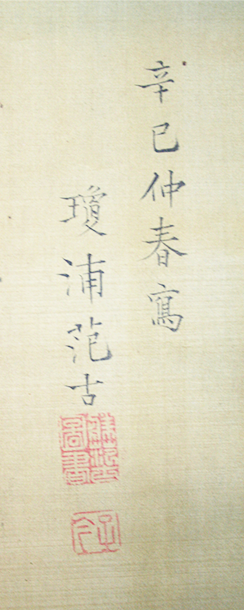 辛巳仲春寫
瓊浦范古